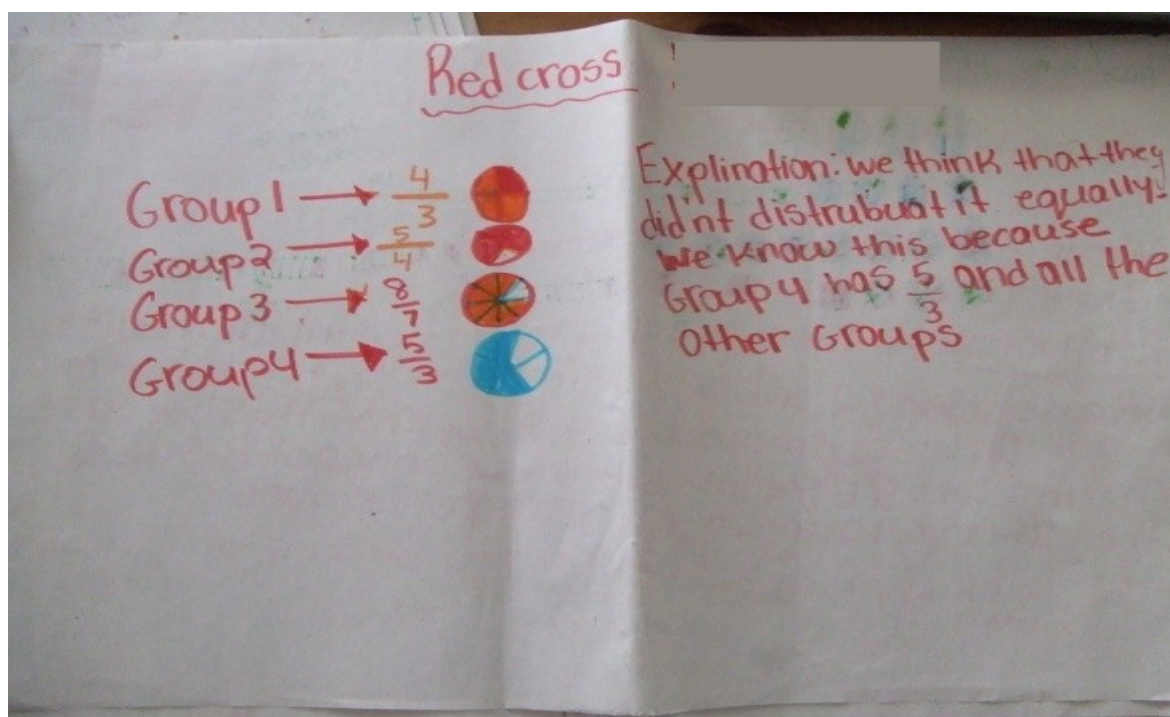 Red cross
Group 1 → 4/3
Group 2 → 5/4
Group 3 → 8/7
Group 4 → 5/3
Explination: we think that they
did'nt distrubuat it equally.
We know this because
Group 4 has 5/3 and all the
other Groups